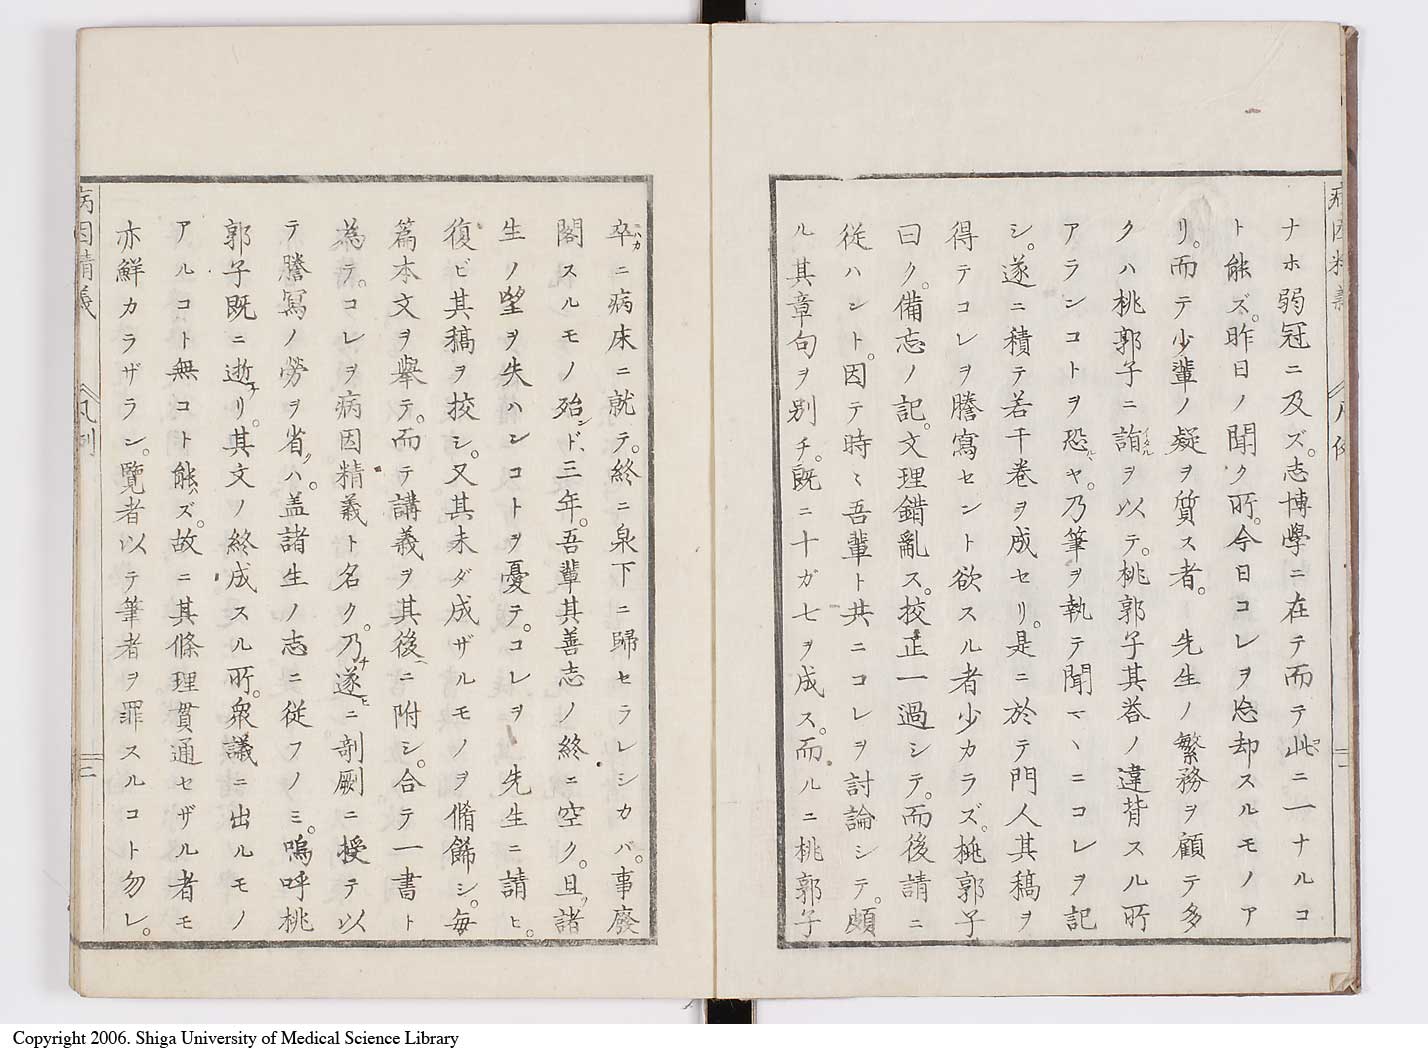 ナホ弱冠ニ及ズ。志博學ニ在テ而テ此ニ一ナルコ
ト能ズ。昨日ノ聞ク所。今日コレヲ忘却スルモノア
リ。而テ少輩ノ疑ヲ質ス者。先生ノ繁務ヲ顧テ多
クハ桃郭子ニ詣ヲ以テ。桃郭子其荅ノ違背スル所
アランコトヲ恐ル。ヤ乃筆ヲ執テ聞マヽニコレヲ記
シ。遂ニ積テ若干卷ヲ成セリ。是ニ於テ門人其稿ヲ
得テコレヲ謄寫セント欲スル者少カラズ。桃郭子
曰ク。備忘ノ記。文理錯亂ス。挍正一過シテ。而後請ニ
從ハント。因テ時〻吾輩ト共ニコレヲ討論シテ。頗
ル其章句ヲ別チ。既ニ十ガ七ヲ成ス。而ルニ桃郭子
卒ニ病床ニ就テ。終ニ泉下ニ歸セラレシカバ。事廢
閣スルモノ殆ンド三年。吾輩其善志ノ終ニ空ク。且ツ諸
生ノ望ヲ失ハンコトヲ憂テ。コレヲ先生ニ請ヒ。
復ビ其稿ヲ挍シ。又其未ダ成ザルモノヲ脩餙シ。每
篇本文ヲ擧テ。而テ講義ヲ其後ニ附シ。合テ一書ト
為テ。コレヲ病因精義ト名ク。乃チ遂ヒニ剞劂ニ授テ以
テ謄寫ノ勞ヲ省ク。ハ盖諸生ノ志ニ從フノミ。嗚呼桃
郭子既ニ逝チリ。其文ノ終成スル所。衆議ニ出ルモノ
アルコト無コト能ハズ。故ニ其條理貫通セザル者モ
亦鮮カラザラン。覽者以テ筆者ヲ罪スルコト勿レ。
病因精義
凡例
二
Copyright 2006. Shiga University of Medical Science Library